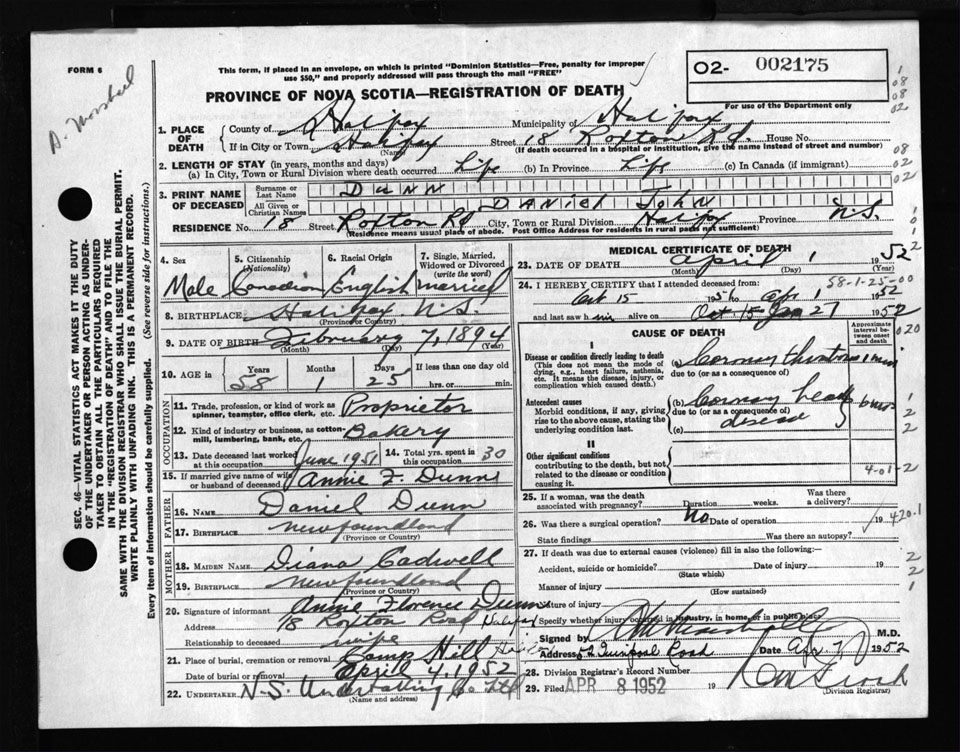 FORM 6
This form, if placed in an envelope, on which is printed "Dominion Statistics—Free, penalty for improper
use $50," and properly addressed will pass through the mail "FREE"
O2- 002175
PROVINCE OF NOVA SCOTIA—REGISTRATION OF DEATH
For use of the Department only
1. PLACE OF DEATH County of Halifax Municipality of Halifax
If in City or Town Halifax Street 18 Roxton Rd. House No.
(Name) (If death occurred in a hospital or institution, give the name instead of street and number)
2. LENGTH OF STAY (in years, months and days)
(a) In City, Town or Rural Division where death occurred Life (b) In Province Life (c) In Canada (if immigrant)
3. PRINT NAME OF DECEASED Surname or Last Name Dunn
All Given or Christian Names Daniel John
RESIDENCE No. 18 Street Roxton Rd City, Town or Rural Division Halifax Province N.S.
(Residence means usual place of abode. Post Office Address for residents in rural parts not sufficient)
4. Sex Male
5. Citizenship (Nationality) Canadian
6. Racial Origin English
7. Single, Married, Widowed or Divorced (write the word) married
8. BIRTHPLACE Halifax N.S.
(Province or Country)
9. DATE OF BIRTH February 7, 1894
(Month) (Day) (Year)
10. AGE in Years 58 Months 1 Days 25 If less than one day
hrs. or min.
OCCUPATION
11. Trade, profession, or kind of work as spinner, teamster, office clerk, etc. Proprietor
12. Kind of industry or business, as cotton-mill, lumbering, bank, etc. Bakery
13. Date deceased last worked at this occupation June 1951 14. Total yrs. spent in this occupation 30
15. If married give name of wife or husband of deceased Annie F. Dunn
FATHER
16. NAME Daniel Dunn
17. BIRTHPLACE newfoundland
(Province or Country)
MOTHER
18. MAIDEN NAME Diana Cadwell
19. BIRTHPLACE newfoundland
(Province or Country)
20. Signature of informant Annie Florence Dunn
Address 18 Roxton Road Halifax
Relationship to deceased wife
21. Place of burial, cremation or removal Camp Hill
Date of burial or removal April 4, 1952
22. UNDERTAKER N.S. Undertaking Co Ltd
(Name and address)
MEDICAL CERTIFICATE OF DEATH
23. DATE OF DEATH April 1 1952
(Month) (Day) (Year)
24. I HEREBY CERTIFY that I attended deceased from: 58-1-25-00
Oct 15 1951 to Apr 1 1952
and last saw him alive on Jan 27 1952
CAUSE OF DEATH
Approximate interval between onset and death
I
Disease or condition directly leading to death
(This does not mean the mode of dying, e.g., heart failure, asthenia, etc. It means the disease, injury, or complication which caused death.)
(a) Coronary thrombosis
due to (or as a consequence of)
Antecedent causes
Morbid conditions, if any, giving rise to the above cause, stating the underlying condition last.
(b) Coronary heart disease
due to (or as a consequence of)
(c)
II
Other significant conditions
contributing to the death, but not related to the disease or condition causing it.
4-01-2
25. If a woman, was the death associated with pregnancy? Duration weeks. Was there a delivery?
26. Was there a surgical operation? No Date of operation 19 420.1
State findings Was there an autopsy?
27. If death was due to external causes (violence) fill in also the following:—
Accident, suicide or homicide? Date of injury 19
(State which)
Manner of injury
(How sustained)
Nature of injury
Specify whether injury occurred in industry, in home, or in public place
Signed by M.D.
Address Quinpool Road Date Apr. 7 1952
28. Division Registrar's Record Number
29. Filed APR 8 1952 19
(Division Registrar)
SEC. 46—VITAL STATISTICS ACT MAKES IT THE DUTY
OF THE UNDERTAKER OR PERSON ACTING AS UNDER-
TAKER TO OBTAIN ALL THE PARTICULARS REQUIRED
IN THE "REGISTRATION OF DEATH" AND TO FILE THE
SAME WITH THE DIVISION REGISTRAR WHO SHALL ISSUE THE BURIAL PERMIT.
WRITE PLAINLY WITH UNFADING INK. THIS IS A PERMANENT RECORD.
Every item of information should be carefully supplied. (See reverse side for instructions.)